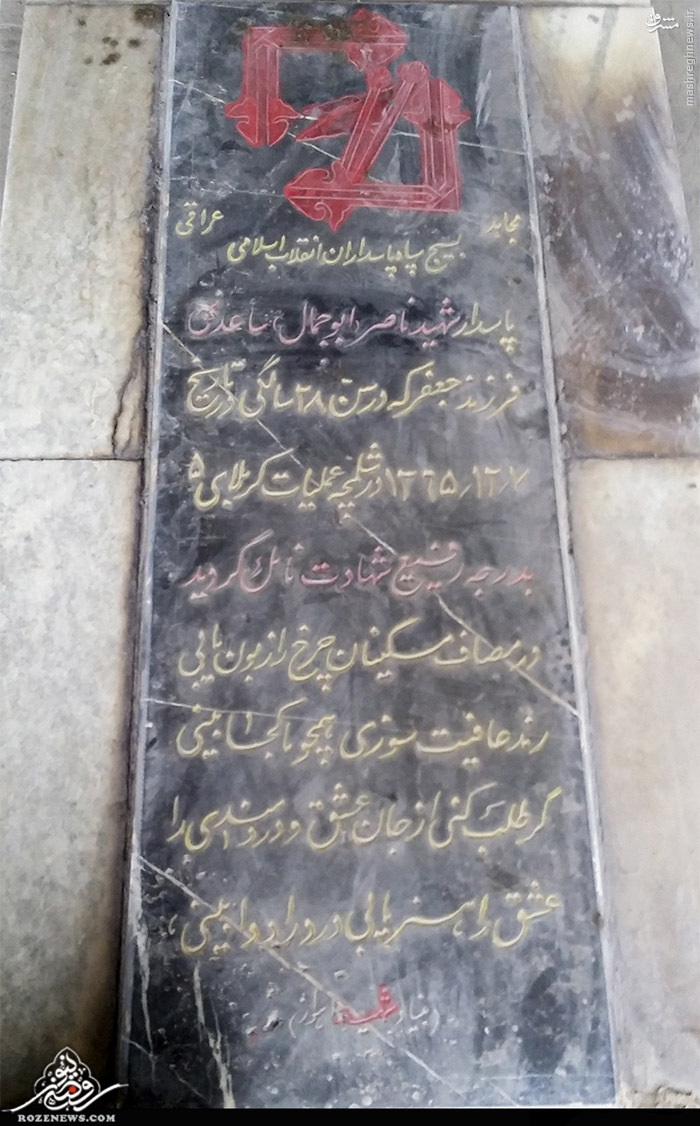 مشرق
mashreghnews.ir
مجاهد عراقی
بسیج سپاه پاسداران انقلاب اسلامی
پاسدار شهید ناصر (ابوجمال) ساعد
فرزند جعفر که در سن ۲۸ سالگی در تاریخ
۱۳۶۵/۱۲/۷ در شلمچه عملیات کربلای ۵
بدرجه رفیع شهادت نائل گردید
در مصاف مسکینان چرخ را زبون یابی
رند عافیت سوزی همچو ما کجا بینی
گر طلب کنی از جان عشق و دردمندی را
عشق را هنر یابی درد را دوا بینی،
(بنیاد شهید اهواز)
روضه نیوز
ROZENEWS.COM